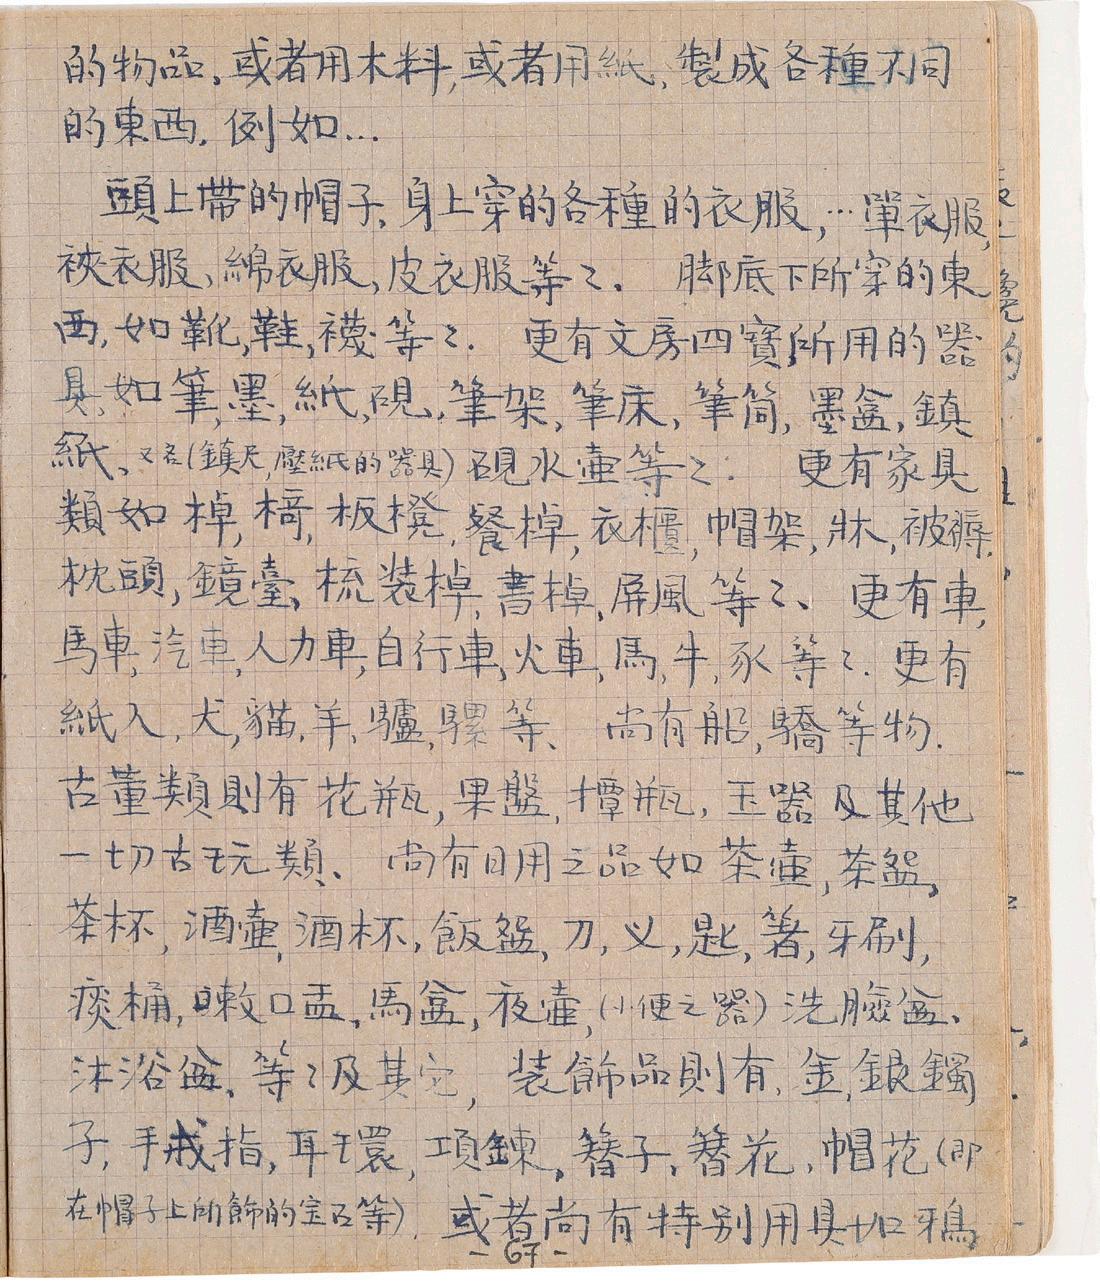 的物品,或者用木料,或者用紙,製成各種不同
的東西,例如...
頭上帶的帽子,身上穿的各種的衣服,...單衣服,
裌衣服、綿衣服,皮衣服等〻. 脚底下所穿的東
西,如靴,鞋,襪等〻. 更有文房四寶,所用的器
具,如筆,墨,紙,硯,筆架,筆床,筆筒,墨盒,鎮
紙、又名(鎮尺,壓紙的器具)硯水壺等〻. 更有家具
類如棹,椅,板櫈,餐棹,衣櫃,帽架,牀,被褥,
枕頭,鏡臺,梳裝棹,書棹,屏風等〻、 更有車,
馬車,汽車,人力車,自行車,火車,馬,牛,豕等〻. 更有
紙人,犬,貓,羊,驢,騾等、 尚有船,轎等物.
古董類則有花瓶,果盤,撢瓶,玉器及其他
一切古玩類、 尚有日用之品如茶壺,茶盌,
茶杯,酒壺,酒杯,飯盌,刀,义,匙,箸,牙刷,
痰桶,嗽口盂,馬盆,夜壺,(小便之器)洗臉盆、
沐浴盆、等〻及其它, 装飾品則有,金,銀鐲
子,手戒指,耳環,項鍊,簪子,簪花,帽花(即
在帽子上所飾的宝石等) 或者尚有特别用具如鴉
-67-